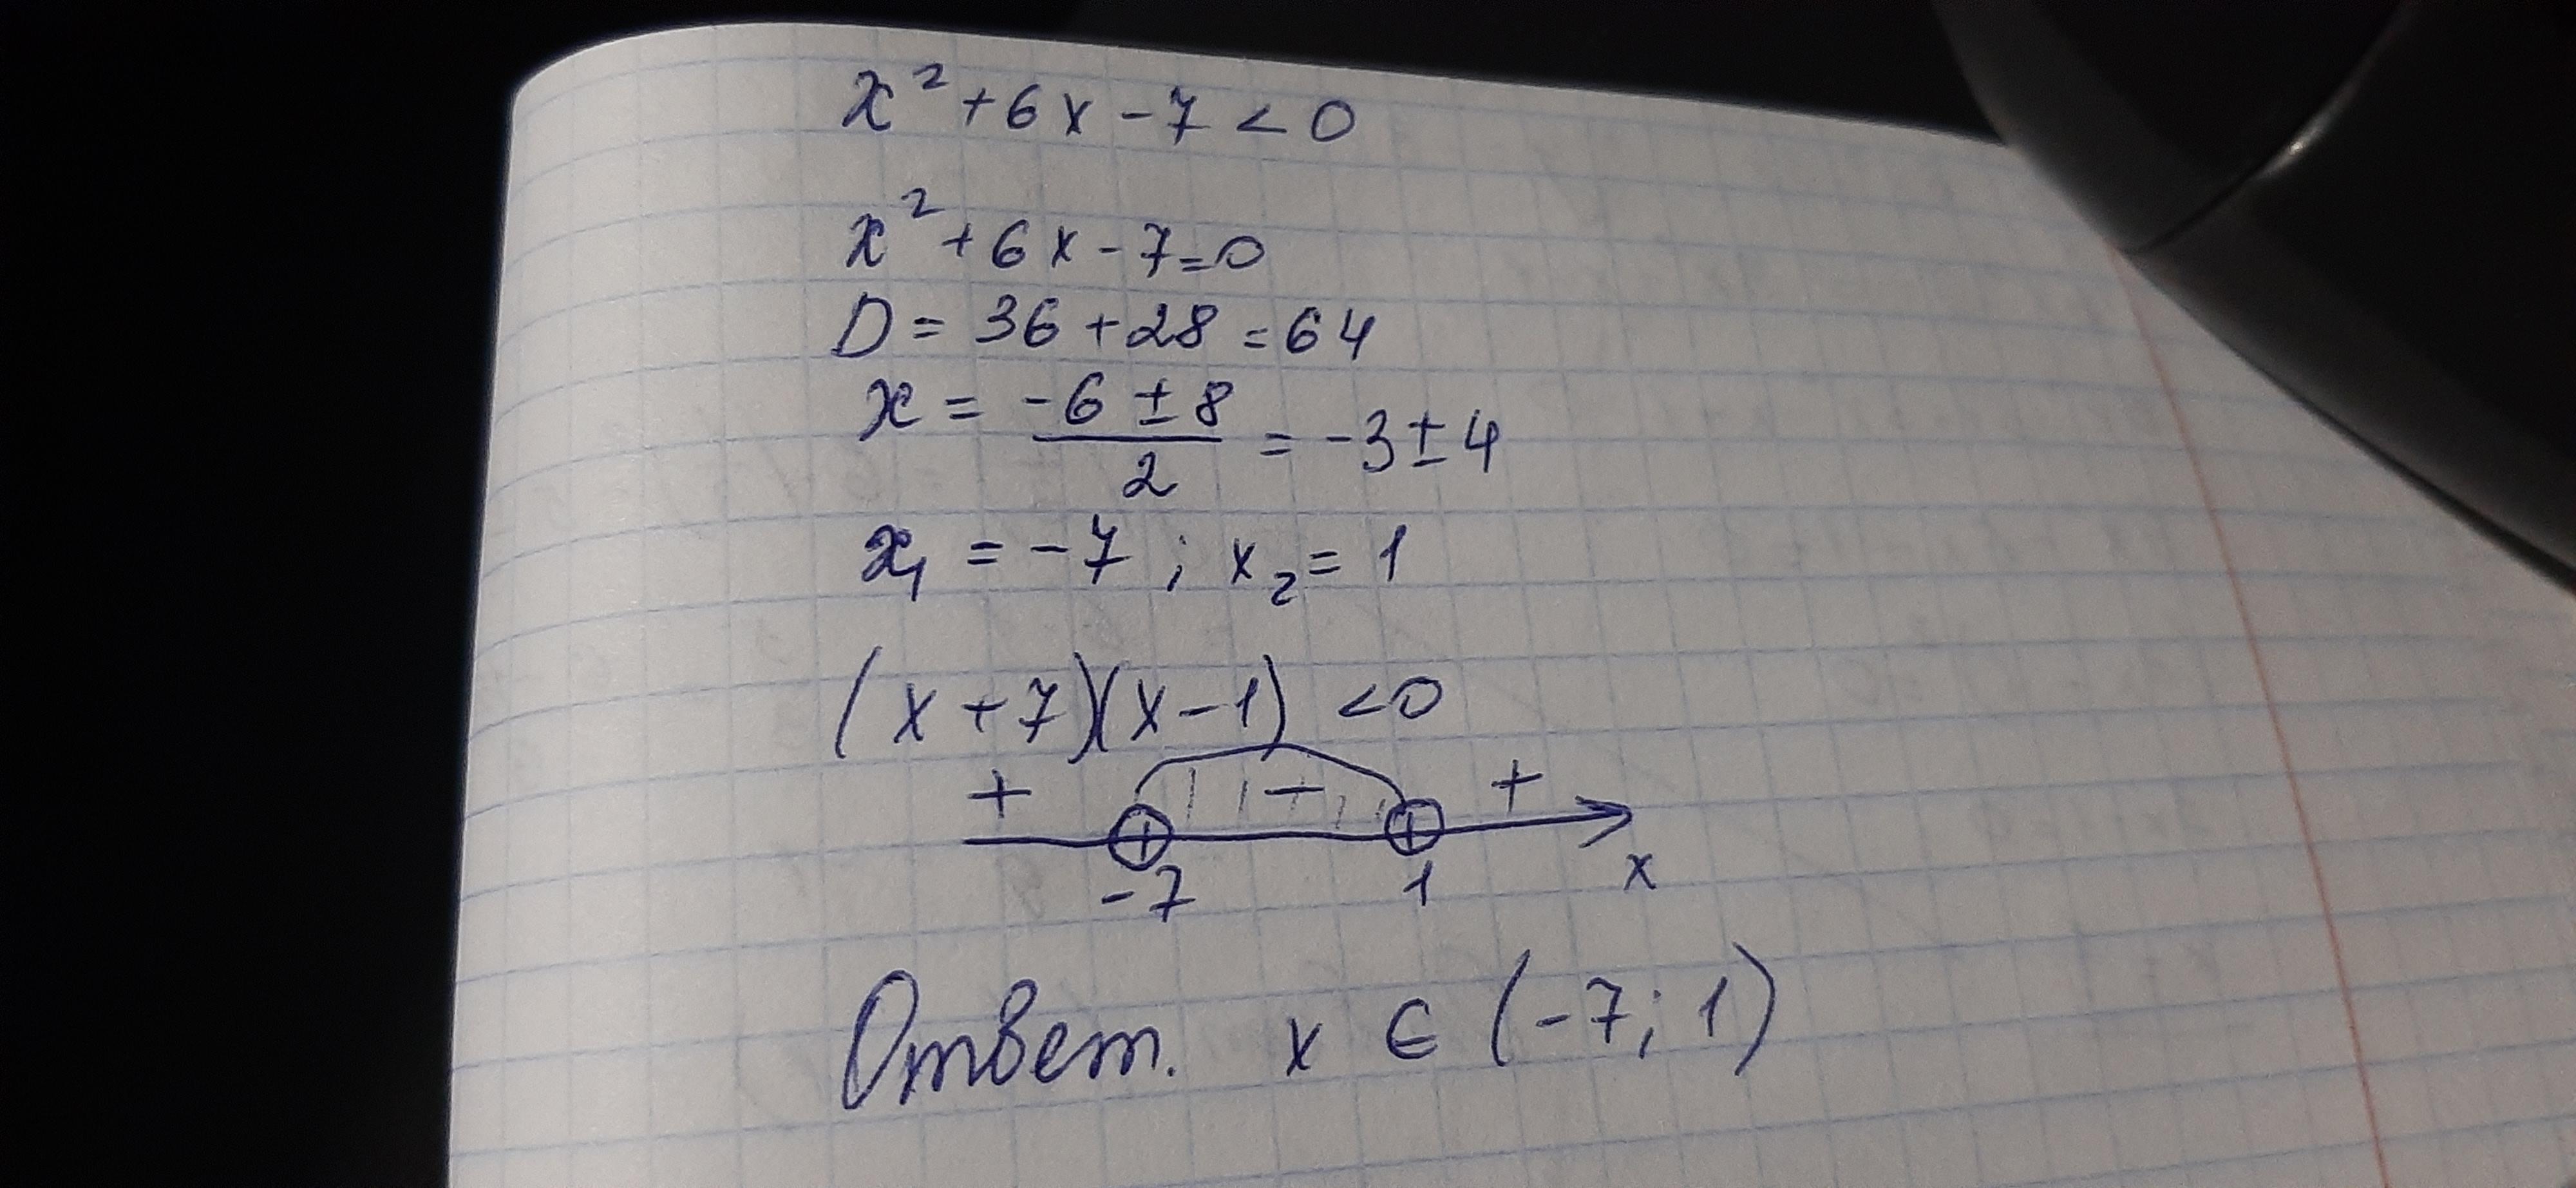 x² + 6x - 7 < 0
x² + 6x - 7 = 0
D = 36 + 28 = 64
x = (-6 ± 8)/2 = -3 ± 4
x₁ = -7 ; x₂ = 1
(x + 7)(x - 1) < 0
+ - +
-7 1 x
Ответ. x ∈ (-7; 1)